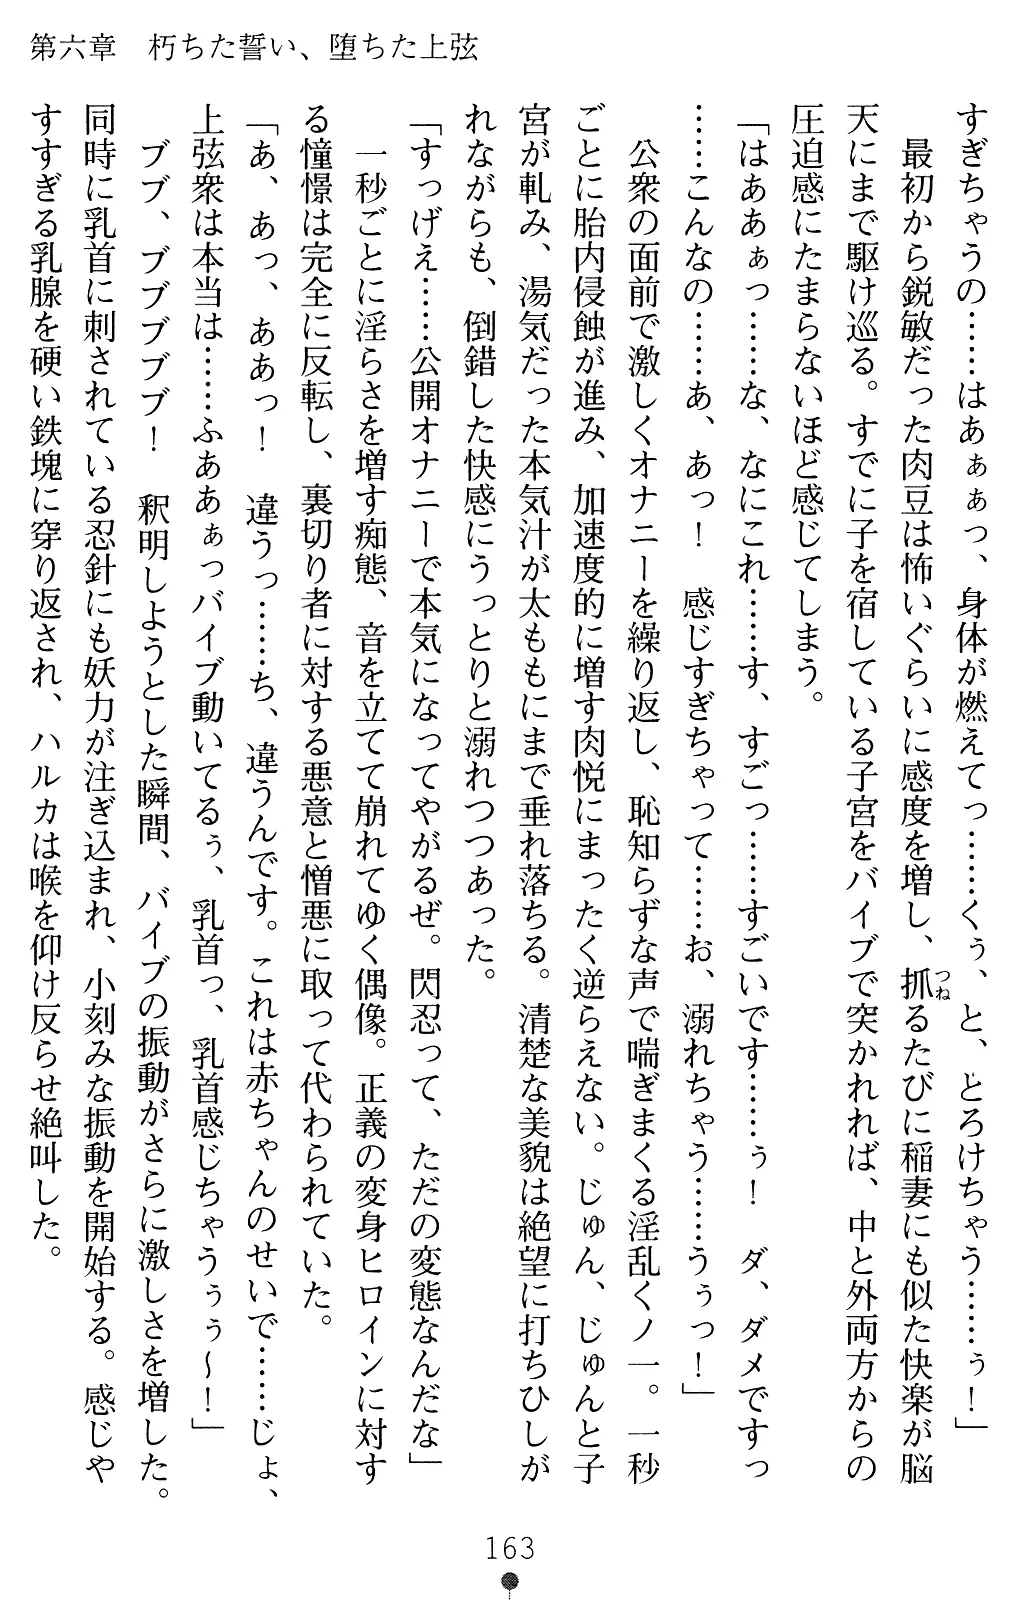 第六章　朽ちた誓い、堕ちた上弦
すぎちゃうの……はあぁぁっ、身体が燃えてっ……くぅ、と、とろけちゃう……ぅ！」
　最初から鋭敏だった肉豆は怖いぐらいに感度を増し、抓るたびに稲妻にも似た快楽が脳
つね
天にまで駆け巡る。すでに子を宿している子宮をバイブで突かれれば、中と外両方からの
圧迫感にたまらないほど感じてしまう。
「はああぁっ……な、なにこれ……す、すごっ……すごいです……ぅ！　ダ、ダメですっ
……こんなの……あ、あっ！　感じすぎちゃって……お、溺れちゃう……うぅっ！」
　公衆の面前で激しくオナニーを繰り返し、恥知らずな声で喘ぎまくる淫乱くノ一。一秒
ごとに胎内侵蝕が進み、加速度的に増す肉悦にまったく逆らえない。じゅん、じゅんと子
宮が軋み、湯気だった本気汁が太ももにまで垂れ落ちる。清楚な美貌は絶望に打ちひしが
れながらも、倒錯した快感にうっとりと溺れつつあった。
「すっげえ……公開オナニーで本気になってやがるぜ。閃忍って、ただの変態なんだな」
　一秒ごとに淫らさを増す痴態、音を立てて崩れてゆく偶像。正義の変身ヒロインに対す
る憧憬は完全に反転し、裏切り者に対する悪意と憎悪に取って代わられていた。
「あ、あっ、ああっ！　違うっ……ち、違うんです。これは赤ちゃんのせいで……じょ、
上弦衆は本当は……ふああぁっバイブ動いてるぅ、乳首っ、乳首感じちゃうぅぅ～！」
　ブブ、ブブブブブ！　釈明しようとした瞬間、バイブの振動がさらに激しさを増した。
同時に乳首に刺されている忍針にも妖力が注ぎ込まれ、小刻みな振動を開始する。感じや
すすぎる乳腺を硬い鉄塊に穿り返され、ハルカは喉を仰け反らせ絶叫した。
163